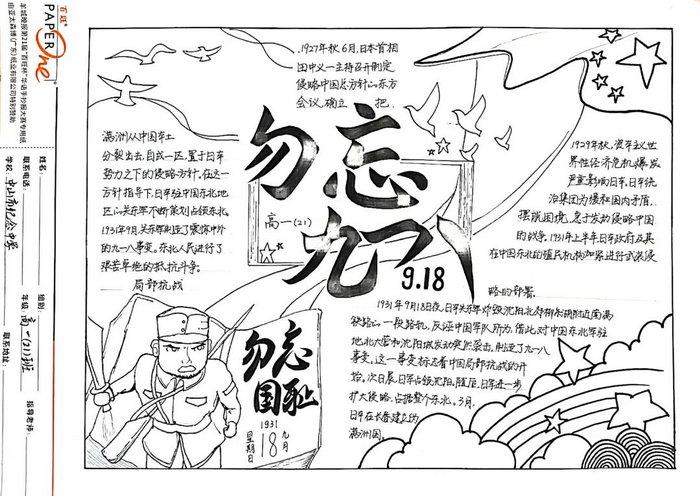 百旺
PAPER
One
羊城晚报第21届“百旺杯”华语手抄报大赛专用纸
由亚太森博(广东)纸业有限公司特别赞助
姓名
组别
指导老师
联系电话:
年级:高一(21)班
学校:中山市纪念中学
联系地址:
1927年秋,6月,日本首相
田中义一主持召开制定
侵略中国总方针的“东方
会议,确立 把
满洲从中国本土
分裂出去,自成一区,置于日军
势力之下的侵略方针。在这一
方针指导下,日军驻中国东北地
区的关东军不断策划占领东北,
1931年9月,关东军制造了震惊中外
的九一八事变。东北人民进行了
艰苦卓绝的抵抗斗争。
局部抗战
勿忘
九一八
高一(21)
9.18
1929年秋,资本主义世
界性经济危机爆发
严重影响日本,日本统
治集团为缓和国内矛盾,
摆脱困境,急于发动侵略中国
的战争。1931年上半年日军政府及其
在中国东北的殖民机构加紧进行武装侵
略的部署.
1931年9月18日夜,日本关东军炸毁沈阳北郊柳条湖附近南满
铁路的一段路轨,反诬中国军队所为,借此对中国东北军驻
地北大营和沈阳城发动突然袭击,制造了九一八
事变。这一事变标志着中国局部抗战的开
始。次日晨,日军占领沈阳,随后,日军进一步
扩大侵略,占据整个东北。3月,
日本在长春建立伪
满洲国。
勿忘
国耻
1931
九月
18
星期日